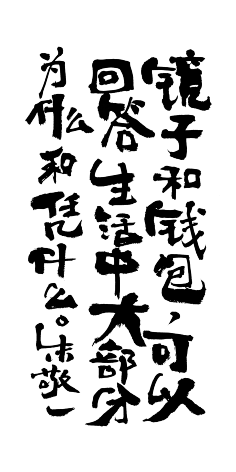 镜子和钱包，可以
回答生活中大部分
为什么和凭什么。朱敬一